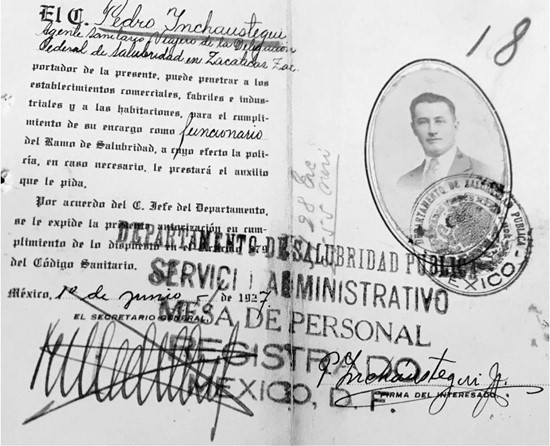 El C. Pedro Inchaustegui
Agente Sanitario Viajero de la Delegación
Federal de Salubridad en Zacatecas Zac.
portador de la presente, puede penetrar a los
establecimientos comerciales, fabriles e indus-
triales y a las habitaciones, para el cumpli-
miento de su encargo como funcionario
del Ramo de Salubridad, a cuyo efecto la poli-
cía, en caso necesario, le prestará el auxilio
que le pida.
Por acuerdo del C. Jefe del Departamento,
se le expide la presente autorización en cum-
plimiento de lo dispuesto
del Código Sanitario.
México, 1o de junio de 1927
EL SECRETARIO GENERAL,
18
DEPARTAMENTO DE SALUBRIDAD PUBLICA
MEXICO
DEPARTAMENTO DE SALUBRIDAD PUBLICA
SERVICIO ADMINISTRATIVO
MESA DE PERSONAL
REGISTRADO
MEXICO, D. F.
P. Inchaustegui Jr.
FIRMA DEL INTERESADO